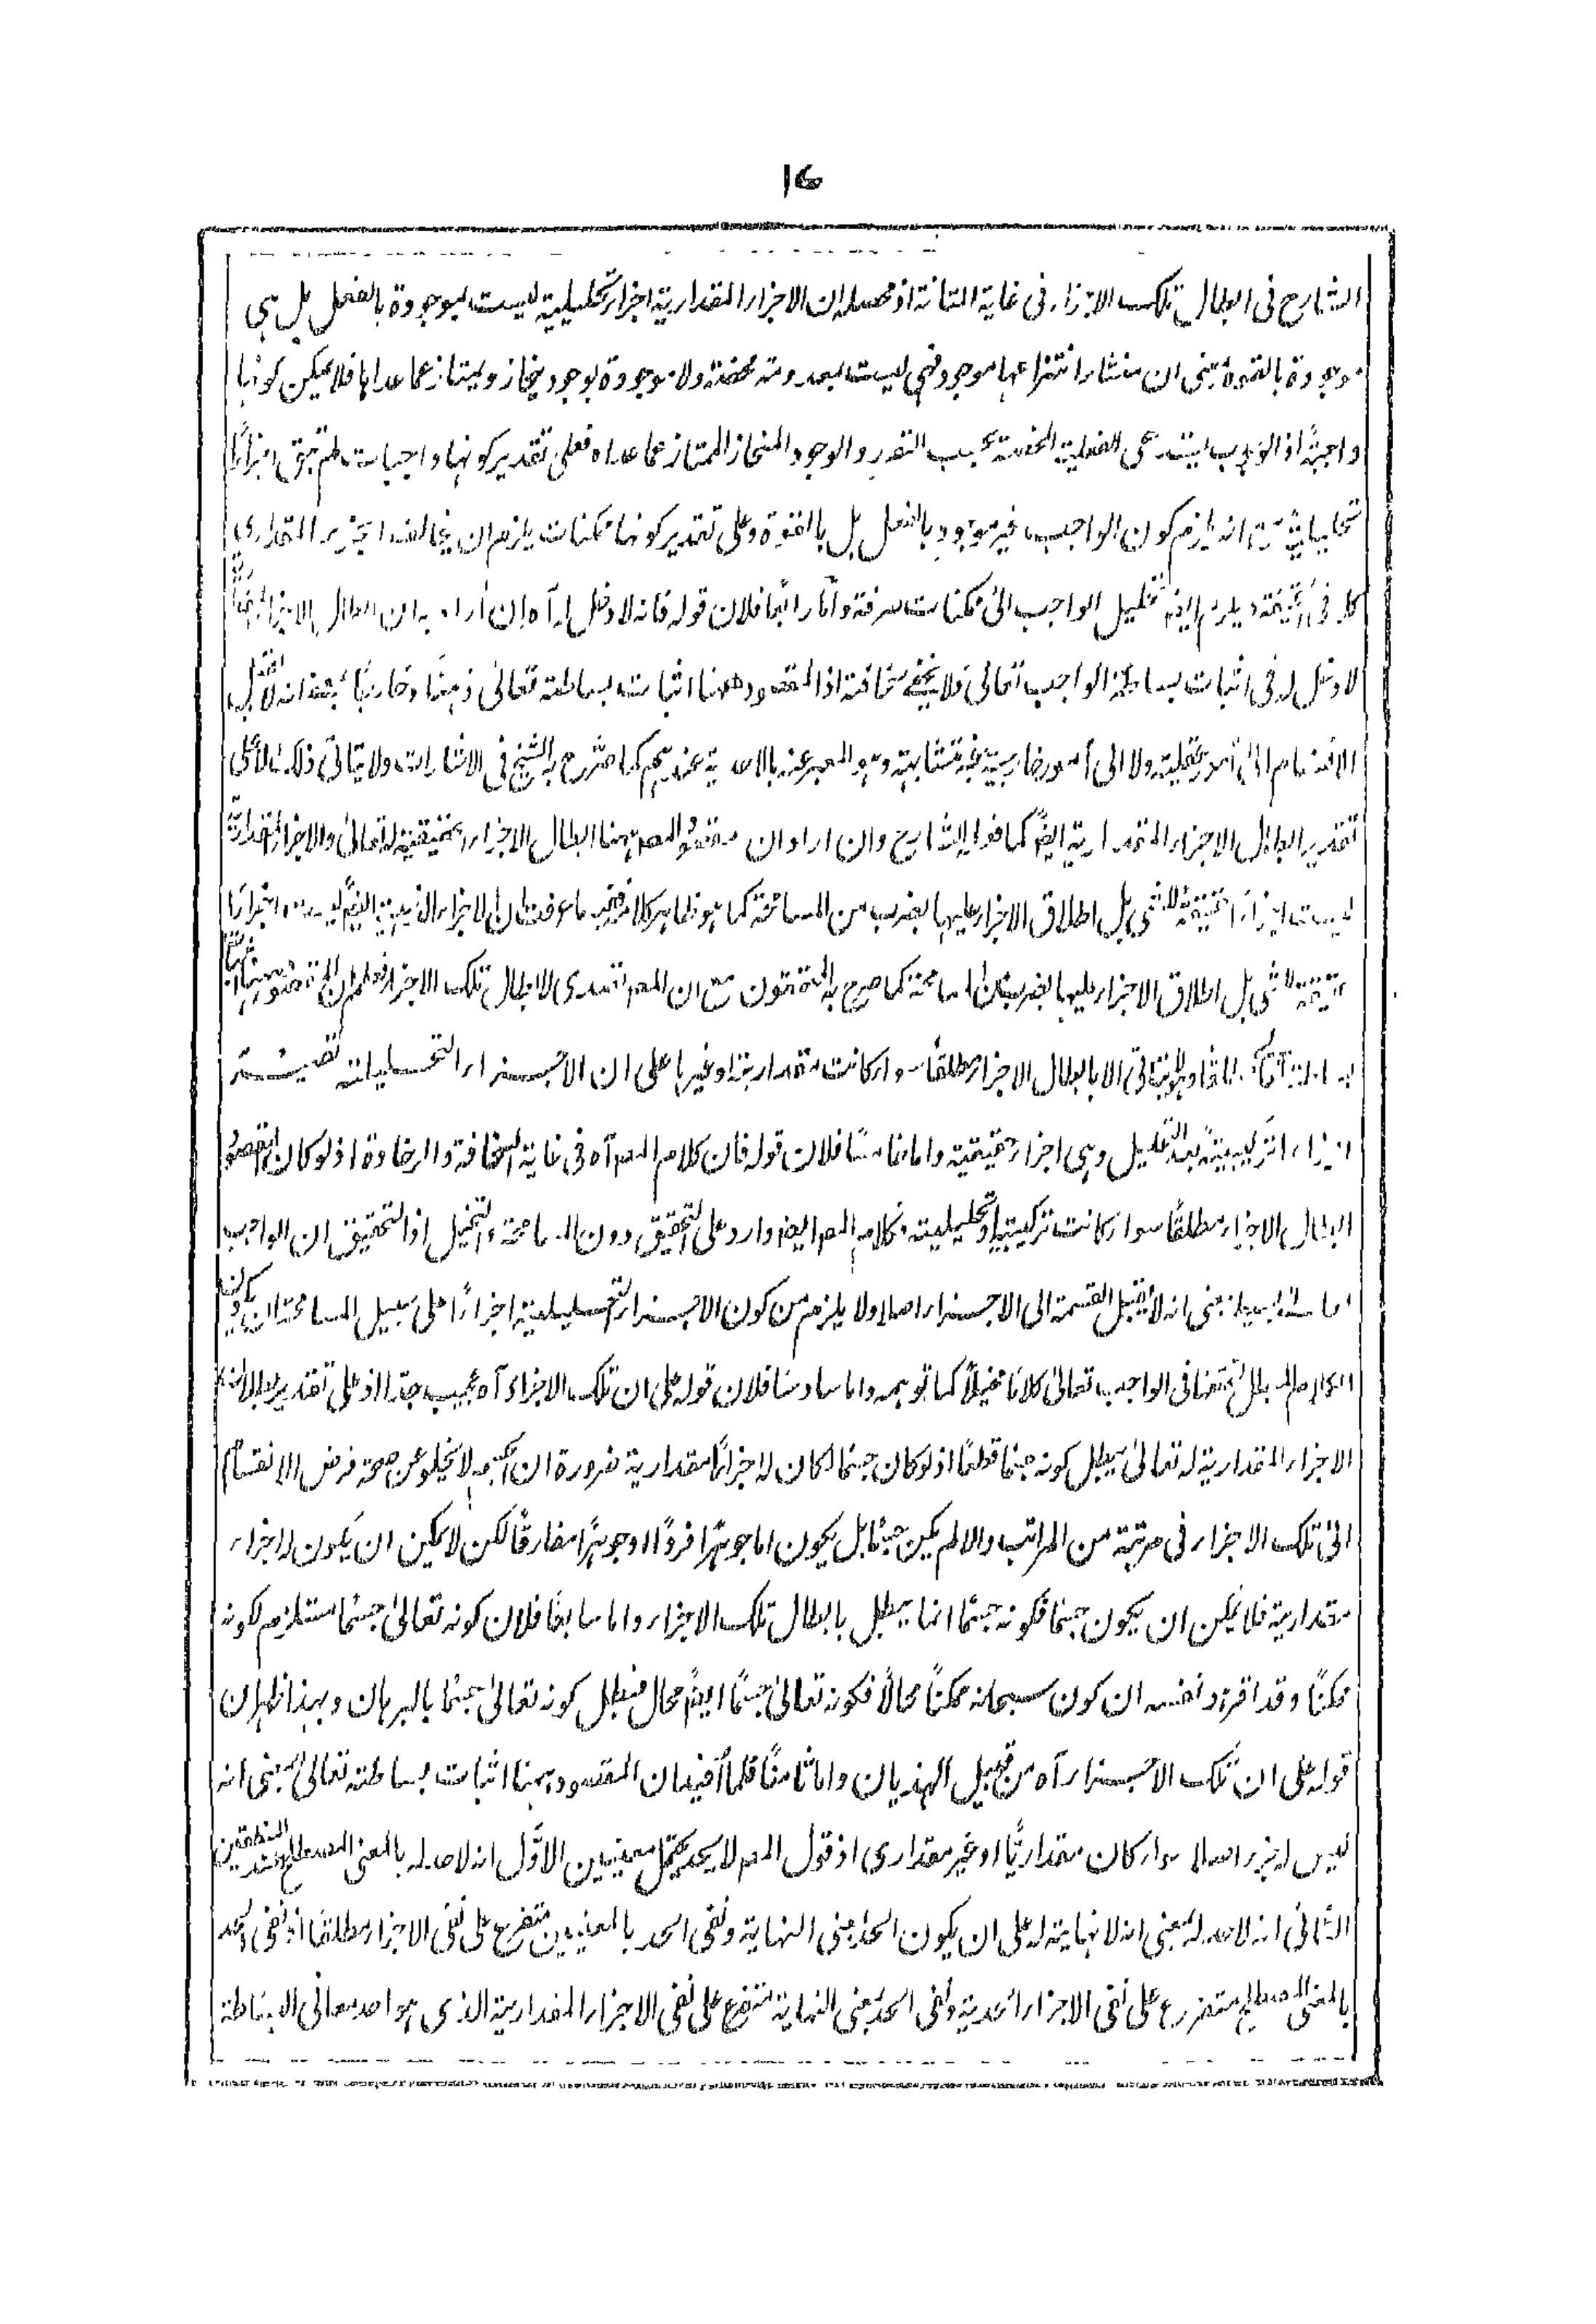 ١٦
الشارح فى ابطال تلك الاجزاء فى غاية المتانة اذ محصله ان الاجزاء المقدارية اجزاء تحليلية ليست بموجودة بالفعل بل هى
موجودة بالقوة بمعنى ان منشاء انتزاعها موجود فهى ليست بمعدومة محضة ولا موجودة بوجود ينحاز ويمتاز عما عداها فلا يمكن كونها
واجبة اذ الوجوب يستدعى الفعلية المحضة بحسب التقرر والوجود المنحاز الممتاز عما عداه فعلى تقدير كونها واجبات لم تبق اجزاءً
تحليلية مع انه يلزم كون الواجب غير موجود بالفعل بل بالقوة وعلى تقدير كونها ممكنات يلزم ان يخالف الجزء المقدارى
كله فى الحقيقة ويلزم ايضا تحليل الواجب الى ممكنات صرفة واما رابعًا فلان قوله فانه لا دخل له آه ان اراد به ان ابطال الاجزاء
لا دخل له فى اثبات بساطة الواجب تعالى فلا يخفى سخافته اذ المقصود ههنا اثبات بساطته تعالى ذهنًا وخارجًا بمعنى انه لا يقبل
الانقسام الى امور عقلية ولا الى امور خارجية غير متشابهة وهو المعبر عنه بالاحدية عندهم كما صرح به الشيخ فى الاشارات ولا يتاتى ذلك الا على
تقدير ابطال الاجزاء المقدارية ايضًا كما فعله الشارح وان اراد ان مقصود المصـ ههنا ابطال الاجزاء الحقيقية له تعالى والاجزاء المقدارية
ليست اجزاءً حقيقة للشئ بل اطلاق الاجزاء عليها بضرب من المسامحة كما هو ظاهر كلامه ففيه ما عرفت ان الاجزاء الذهنية ايضًا ليست اجزاءً
حقيقة للشئ بل اطلاق الاجزاء عليها بضرب من المسامحة كما صرح به المحققون مع ان المصـ تصدى لابطال تلك الاجزاء فعلم ان المقصود ههنا
الا بابطال الاجزاء مطلقًا سواء كانت مقدارية او غيرها على ان الاجزاء التحليلية تصير
اجزاءً تركيبية بعد التحليل وهى اجزاء حقيقية واما خامسًا فلان قوله فان كلام المصـ آه فى غاية السخافة والرخاوة اذ لو كان المقصود
ابطال الاجزاء مطلقًا سواء كانت تركيبية او تحليلية فكلام المصـ ايضا وارد على التحقيق دون المسامحة والتخييل اذ التحقيق ان الواجب
بسيط بمعنى انه لا يقبل القسمة الى الاجزاء اصلا ولا يلزم من كون الاجزاء التحليلية اجزاءً على سبيل المسامحة ان يكون
الكلام المبطل لتحققها فى الواجب تعالى كلامًا مخيلاً كما توهمه واما سادسًا فلان قوله على ان تلك الاجزاء آه عجيب جدا اذ على تقدير بطلان
الاجزاء المقدارية له تعالى يبطل كونه جسمًا قطعًا اذ لو كان جسمًا لكان له اجزاءً مقدارية ضرورة ان الجسم لا يخلو عن صحة فرض الانقسام
الى تلك الاجزاء فى مرتبة من المراتب والا لم يكن جسمًا بل يكون اما جوهرًا فردًا او جوهرًا مفارقًا لكن لا يمكن ان يكون له اجزاء
مقدارية فلا يمكن ان يكون جسمًا فكونه جسمًا انما يبطل بابطال تلك الاجزاء واما سابعًا فلان كونه تعالى جسمًا مستلزم لكونه
ممكنًا وقد اقر هو نفسه ان كون سبحانه ممكنًا محالاً فكونه تعالى جسمًا ايضًا محال فبطل كونه تعالى جسمًا بالبرهان وبهذا ظهر ان
قوله على ان تلك الاجزاء آه من قبيل الهذيان واما ثامنًا فلما افيد ان المقصود ههنا اثبات بساطته تعالى بمعنى انه
ليس له جزء اصلا سواء كان مقداريًا او غير مقدارى اذ قول المصـ لا يحد يحتمل معنيين الاوّل انه لا حد له بالمعنى المصطلح عند المنطقيين
الثانى انه لا حد له بمعنى انه لا نهاية له على ان يكون الحد بمعنى النهاية ونفى الحد بالمعنيين متفرع على نفى الاجزاء مطلقًا اذ نفى الحد
بالمعنى المصطلح متفرع على نفى الاجزاء الحدية ونفى الحد بمعنى النهاية متفرع على نفى الاجزاء المقدارية الذى هو احد معانى البساطة